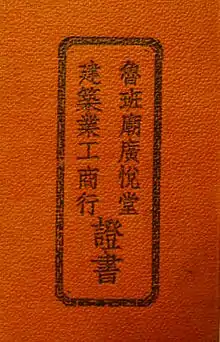 魯班廟廣悅堂
建築業工商行
證書